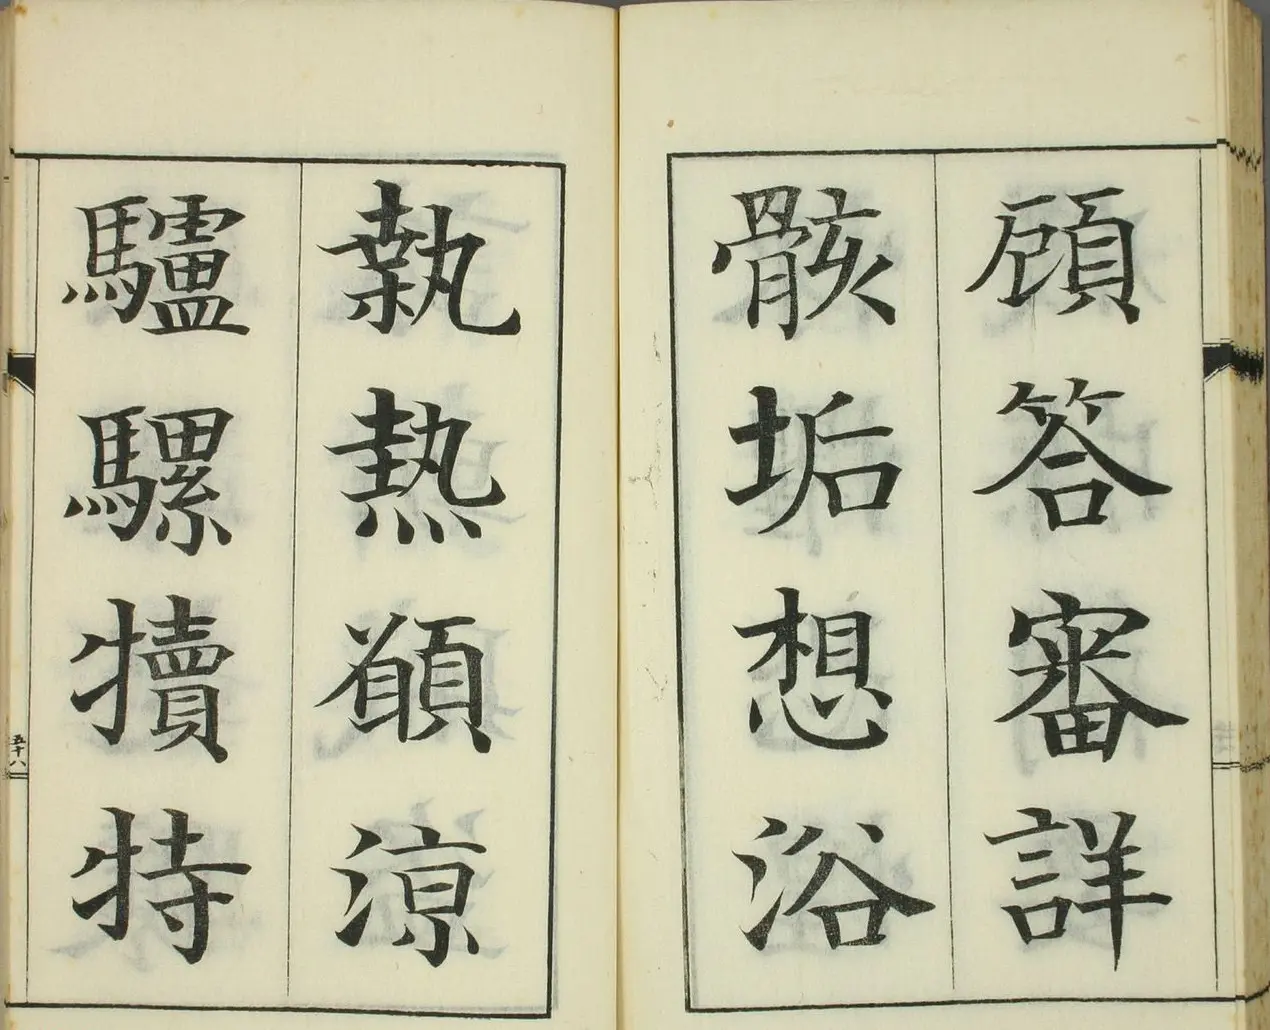 顧答審詳
骸垢想浴
執熱願涼
驢騾犢特
五十八